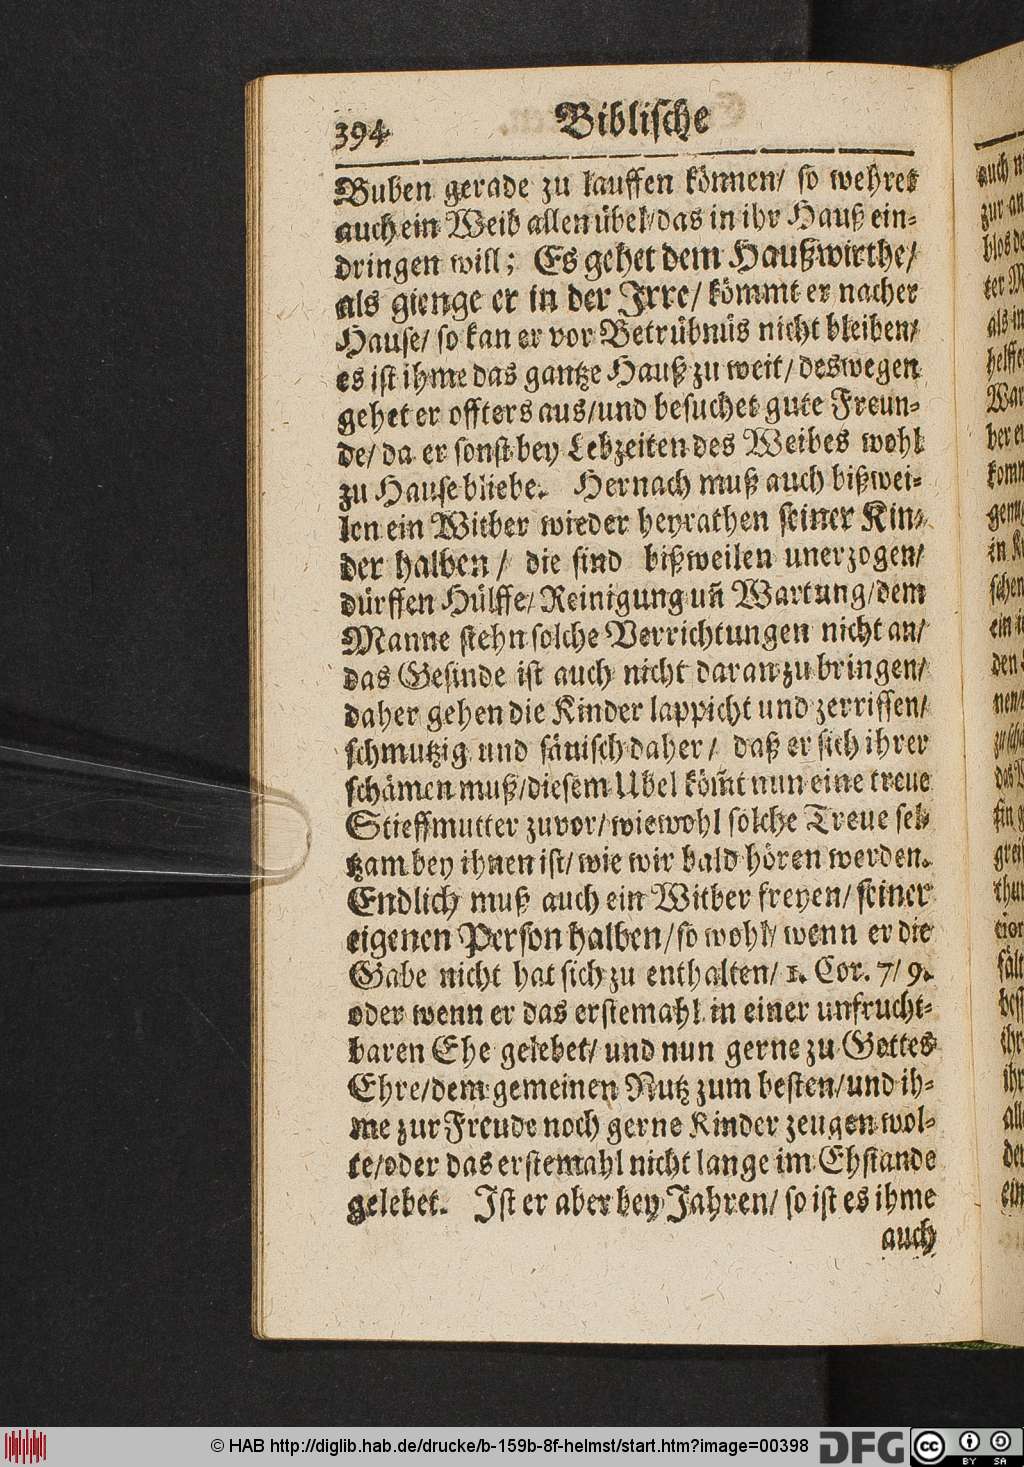 394 Biblische
Buben gerade zu lauffen können/ so wehret
auch ein Weib allen übel/ das in ihr Hauß ein-
dringen will; Es gehet dem Haußwirthe/
als gienge er in der Irre/ kömmt er nacher
Hause/ so kan er vor Betrübnüs nicht bleiben/
es ist ihme das gantze Hauß zu weit/ deswegen
gehet er offters aus/ und besuchet gute Freun-
de/ da er sonst bey Lebzeiten des Weibes wohl
zu Hause bliebe. Hernach muß auch bißwei-
len ein Witber wieder heyrathen seiner Kin-
der halben/ die sind bißweilen unerzogen/
dürffen Hülffe/ Reinigung uñ Wartung/ dem
Manne stehn solche Verrichtungen nicht an/
das Gesinde ist auch nicht daran zu bringen/
daher gehen die Kinder lappicht und zerrissen/
schmutzig und säuisch daher/ daß er sich ihrer
schämen muß/ diesem Ubel köm̃t nun eine treue
Stieffmutter zuvor/ wiewohl solche Treue sel-
tzam bey ihnen ist/ wie wir bald hören werden.
Endlich muß auch ein Witber freyen/ seiner
eigenen Person halben/ so wohl/ wenn er die
Gabe nicht hat sich zu enthalten/ 1. Cor. 7/ 9.
oder wenn er das erstemahl in einer unfrucht-
baren Ehe gelebet/ und nun gerne zu Gottes
Ehre/ dem gemeinen Nutz zum besten/ und ih-
me zur Freude noch gerne Kinder zeugen wol-
te/ oder das erstemahl nicht lange im Ehstande
gelebet. Ist er aber bey Jahren/ so ist es ihme
auch
© HAB http://diglib.hab.de/drucke/b-159b-8f-helmst/start.htm?image=00398
DFG
cc
BY SA